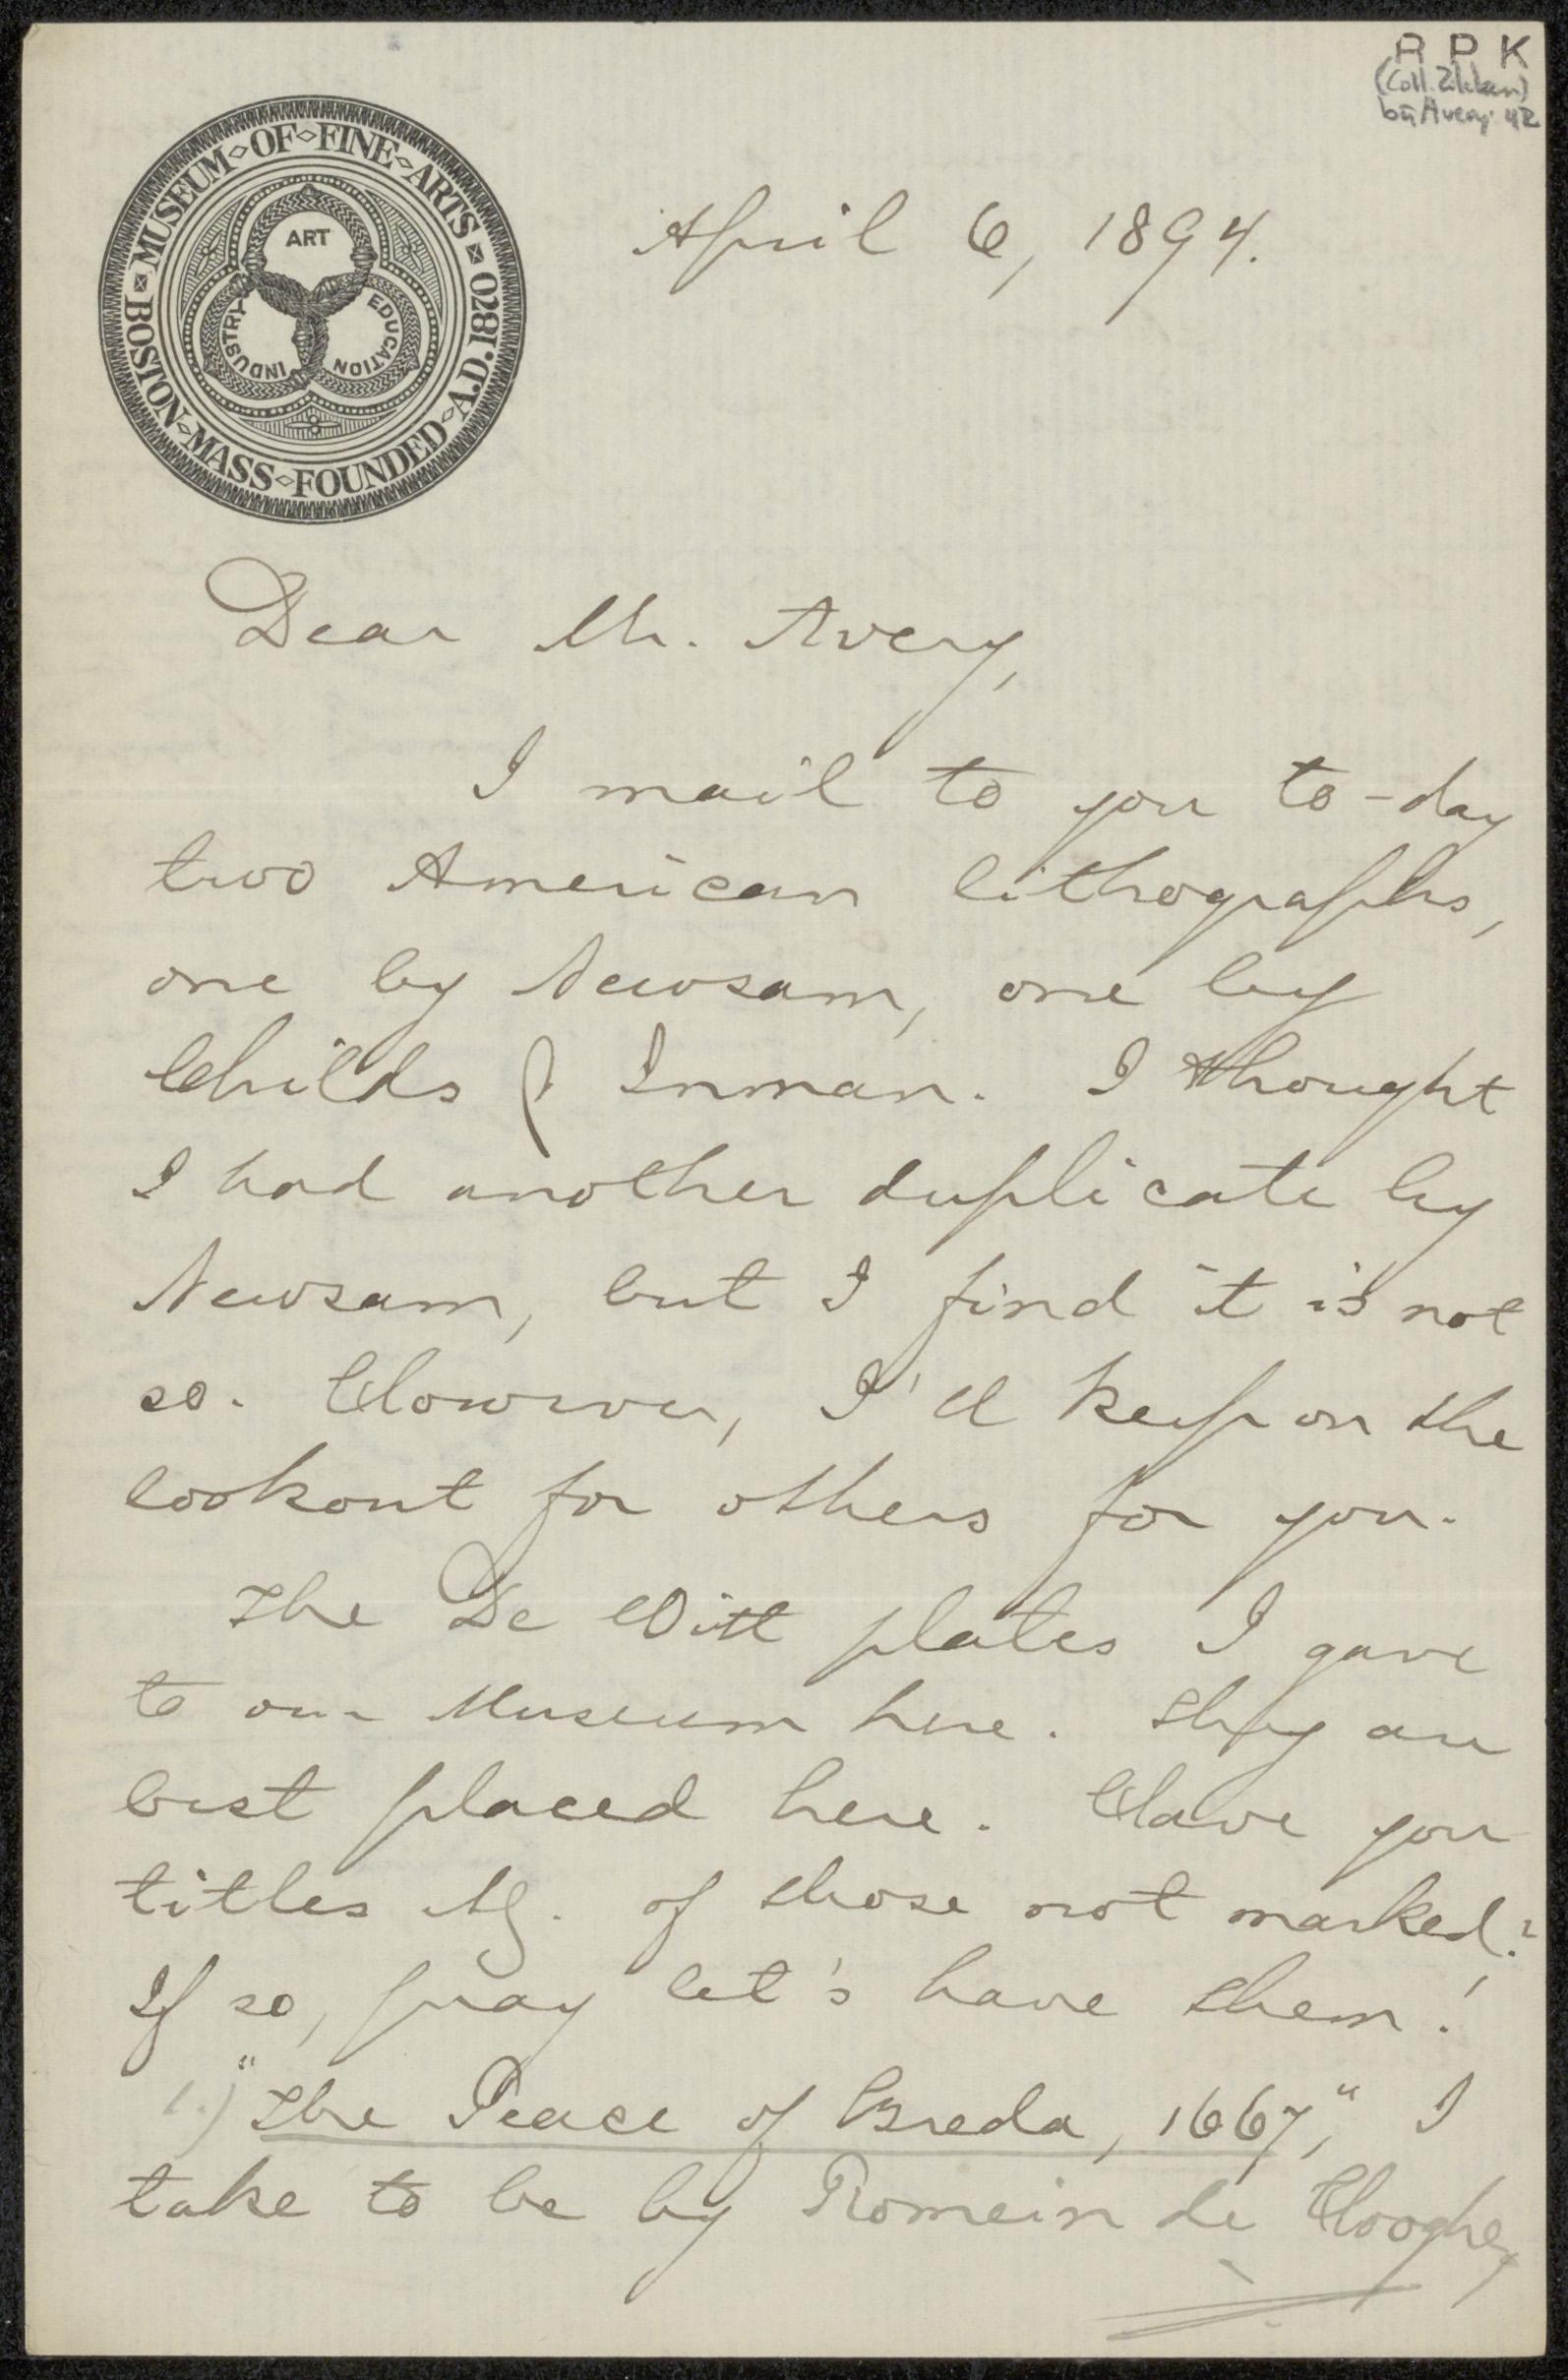 R P K
(Coll. Zilcken)
bij Avery 42
MUSEUM OF FINE ARTS
BOSTON MASS FOUNDED A.D. 1870
ART
INDUSTRY
EDUCATION
April 6, 1894.
Dear Mr. Avery,
I mail to you to-day
two American lithographs,
one by Newsam, one by
Childs & Inman. I thought
I had another duplicate by
Newsam, but I find it is not
so. However, I'll keep on the
lookout for others for you.
The De Witt plates I gave
to our Museum here. They are
best placed here. Have you
titles &c. of those not marked?
If so, pray let's have them!
1.) "The Peace of Breda, 1667," I
take to be by Romein de Hooghe,